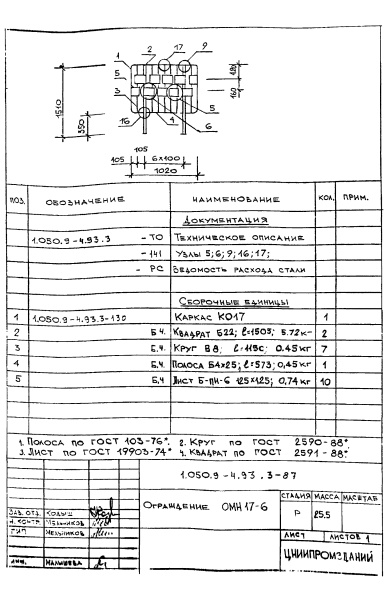 17
9
1
2
5
3
16
4
6
5
1510
350
180
160
105
105
6x100
1020
ПОЗ. ОБОЗНАЧЕНИЕ НАИМЕНОВАНИЕ КОЛ. ПРИМ.
ДОКУМЕНТАЦИЯ
1.050.9-4.93.3 -ТО ТЕХНИЧЕСКОЕ ОПИСАНИЕ
-141 УЗЛЫ 5;6;9;16;17;
- РС ВЕДОМОСТЬ РАСХОДА СТАЛИ
СБОРОЧНЫЕ ЕДИНИЦЫ
1 1.050.9-4.93.3-130 КАРКАС КО17 1
2 Б.Ч. КВАДРАТ Б22; ℓ=1503; 5.72к- 2
3 Б.Ч. КРУГ В8; 0.45кг 7
4 Б.Ч. ПОЛОСА Б4х25; ℓ=573; 0,45кг 1
5 Б.Ч ЛИСТ Б-ПН-6 125х125; 0,74кг 10
1. ПОЛОСА ПО ГОСТ 103-76*. 2. КРУГ ПО ГОСТ 2590-88*.
3. ЛИСТ ПО ГОСТ 19903-74* 4. КВАДРАТ ПО ГОСТ 2591-88*.
1.050.9-4.93.3-87
ОГРАЖДЕНИЕ ОМН17-6
СТАДИЯ МАССА МАСШТАБ
Р 25.5
ЗАВ. ОТД. КОДЫШ
Н. КОНТР. МЕЛЬНИКОВ
ГИП МЕЛЬНИКОВ
ЛИСТ ЛИСТОВ 1
ЦНИИПРОМЗДАНИЙ
ИНЖ. МАЛЫШЕВА